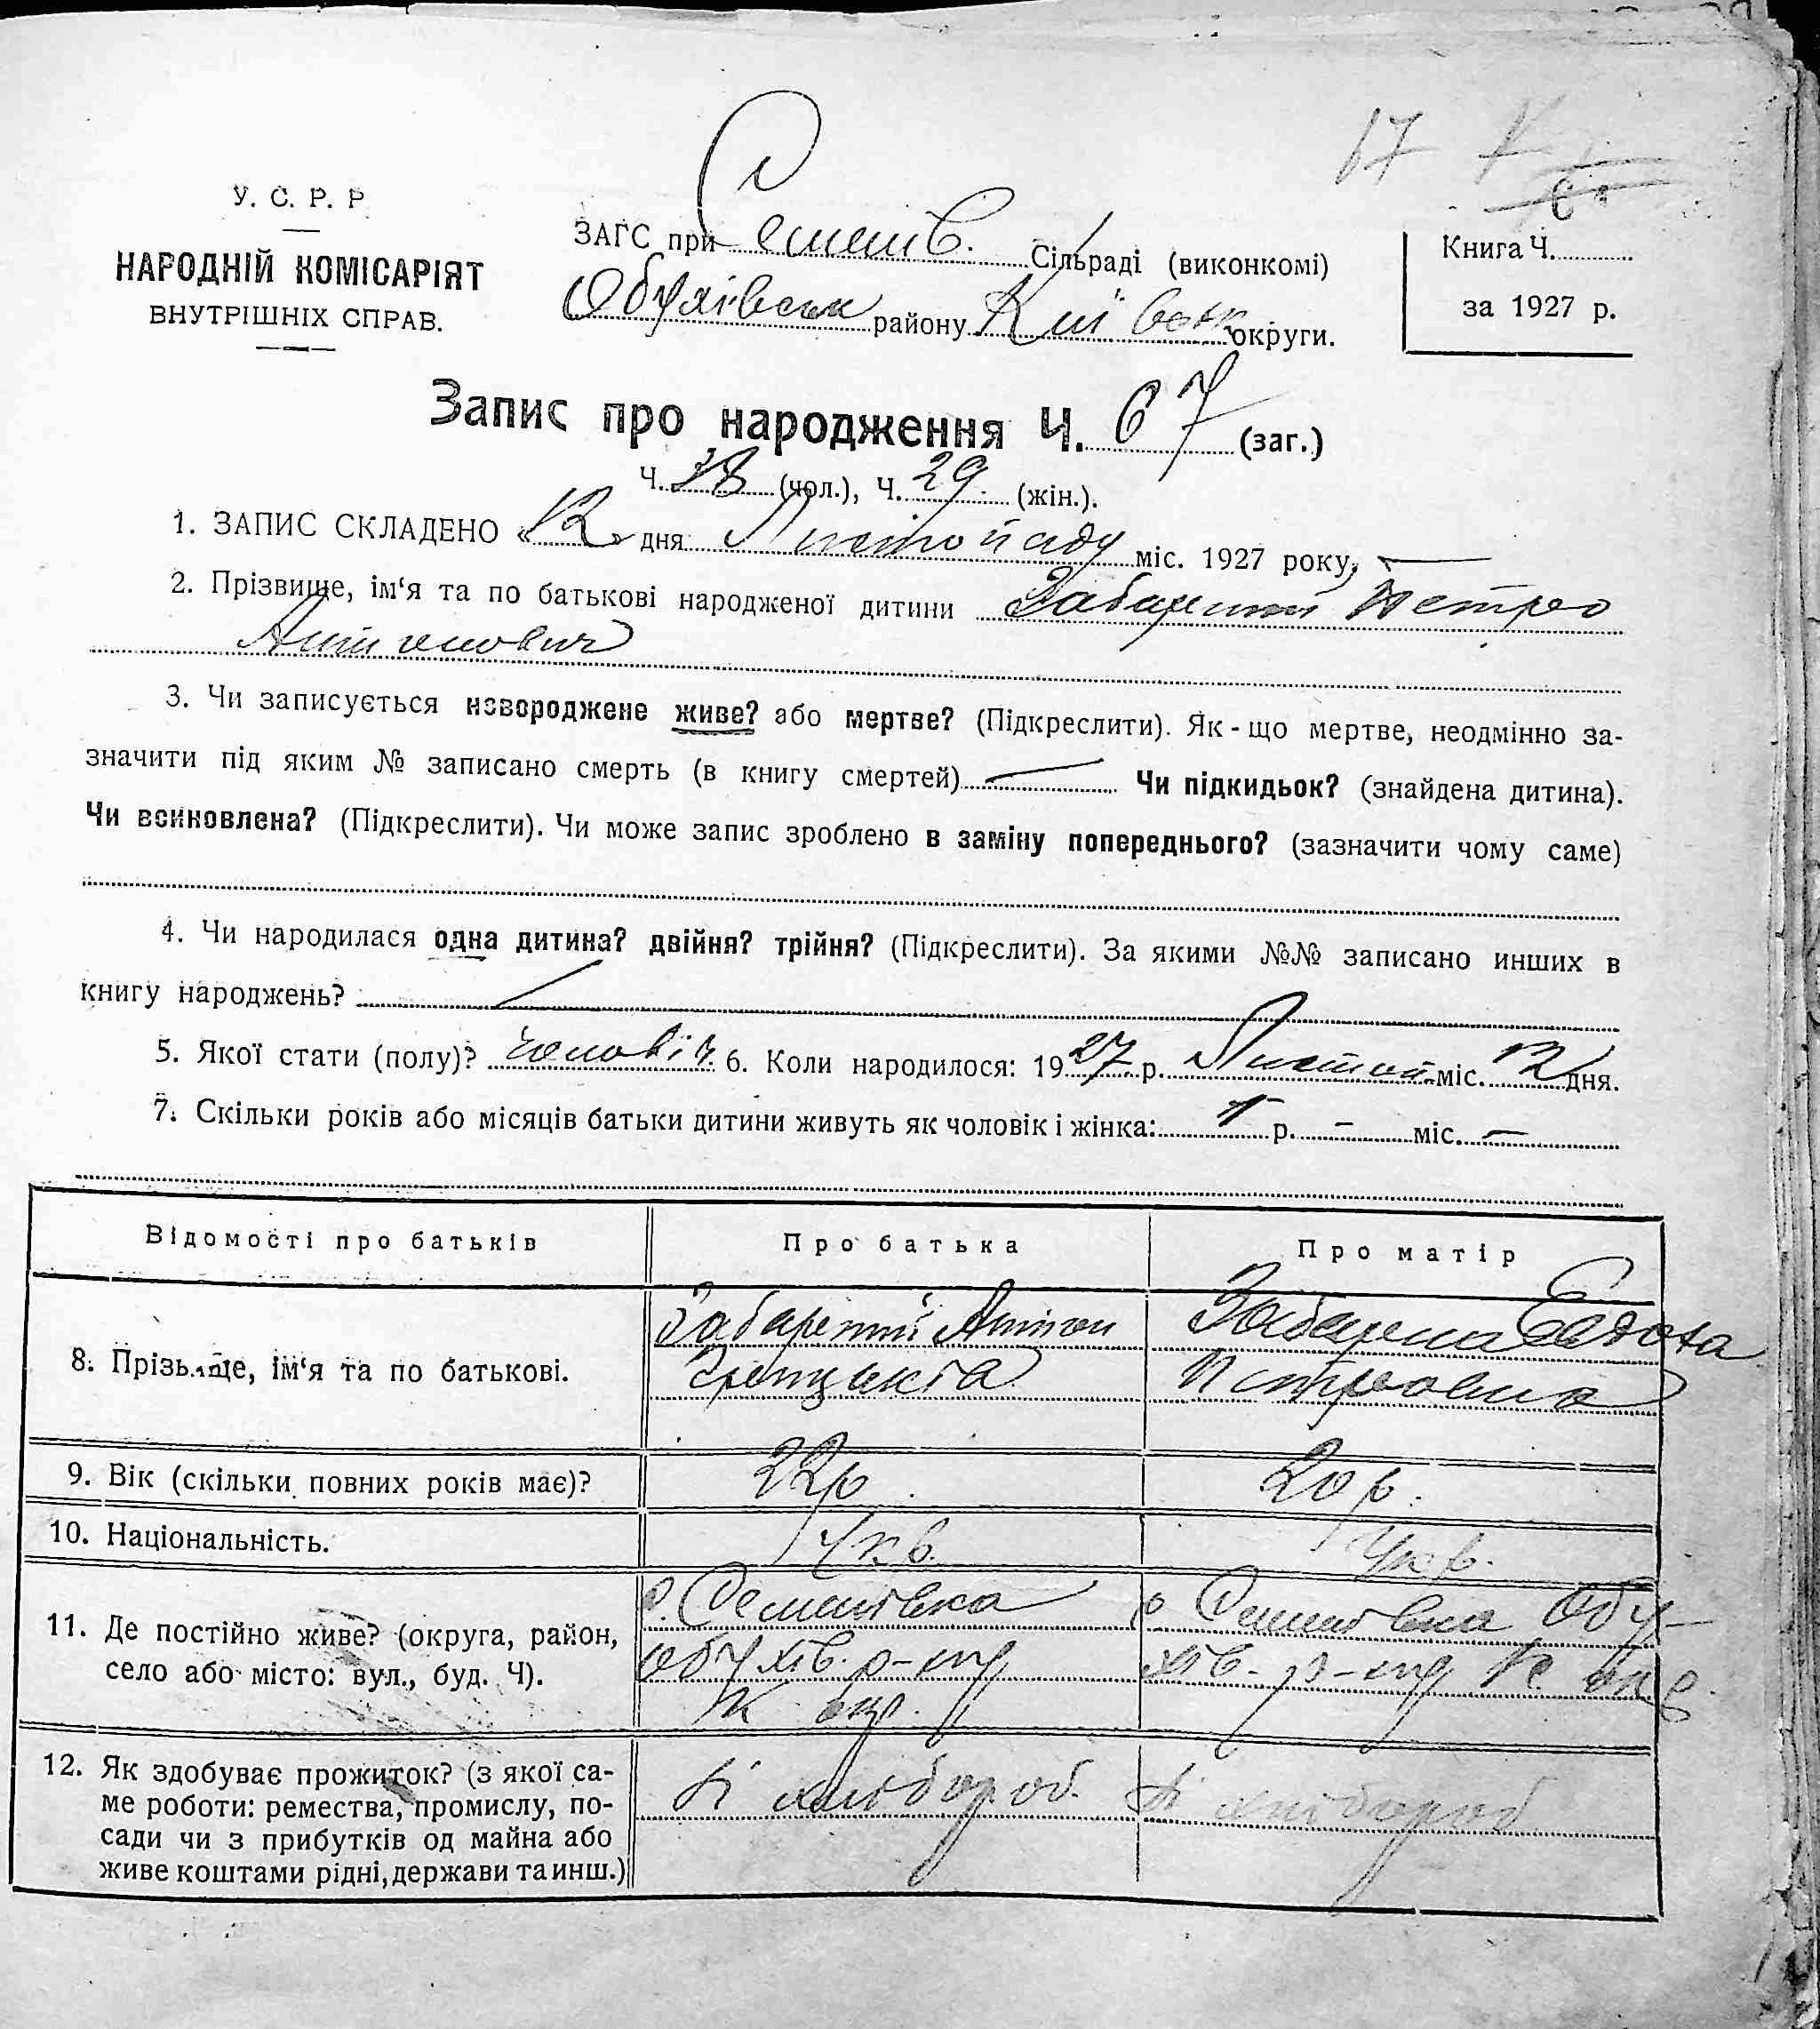 67
У. С. Р. Р.
НАРОДНІЙ КОМІСАРІЯТ
ВНУТРІШНІХ СПРАВ.
ЗАГС при Семенів. Сільраді (виконкомі)
Обухівськ району Київськ округи.
Книга Ч.
за 1927 р.
Запис про народження Ч. 67 (заг.)
Ч. 38 (чол.), Ч. 29 (жін.).
1. ЗАПИС СКЛАДЕНО « 12 » дня Листопаду міс. 1927 року,
2. Прізвище, ім‘я та по батькові народженої дитини Петро
Антонович
3. Чи записується новороджене живе? або мертве? (Підкреслити). Як-що мертве, неодмінно за-
значити під яким № записано смерть (в книгу смертей) Чи підкидьок? (знайдена дитина).
Чи всиновлена? (Підкреслити). Чи може запис зроблено в заміну попереднього? (зазначити чому саме)
4. Чи народилася одна дитина? двійня? трійня? (Підкреслити). За якими №№ записано инших в
книгу народжень?
5. Якої стати (полу)? чоловіч. 6. Коли народилося: 1927 р. Листоп. міс. 12 дня.
7. Скільки років або місяців батьки дитини живуть як чоловік і жінка: 1 р. – міс. –
Відомості про батьків Про батька Про матір
8. Прізьвище, ім‘я та по батькові. Антон Евдоха
Петровна
9. Вік (скільки повних років має)? 22 р. 20 р.
10. Національність. Укр. Укр.
11. Де постійно живе? (округа, район, с. Семенівка с. Семенівка Обу-
село або місто: вул., буд. Ч). Обухів. р-ну хів. р-ну К. окр.
К окр.
12. Як здобуває прожиток? (з якої са-
ме роботи: ремества, промислу, по- хлібороб. хлібороб
сади чи з прибутків од майна або
живе коштами рідні, держави та инш.)